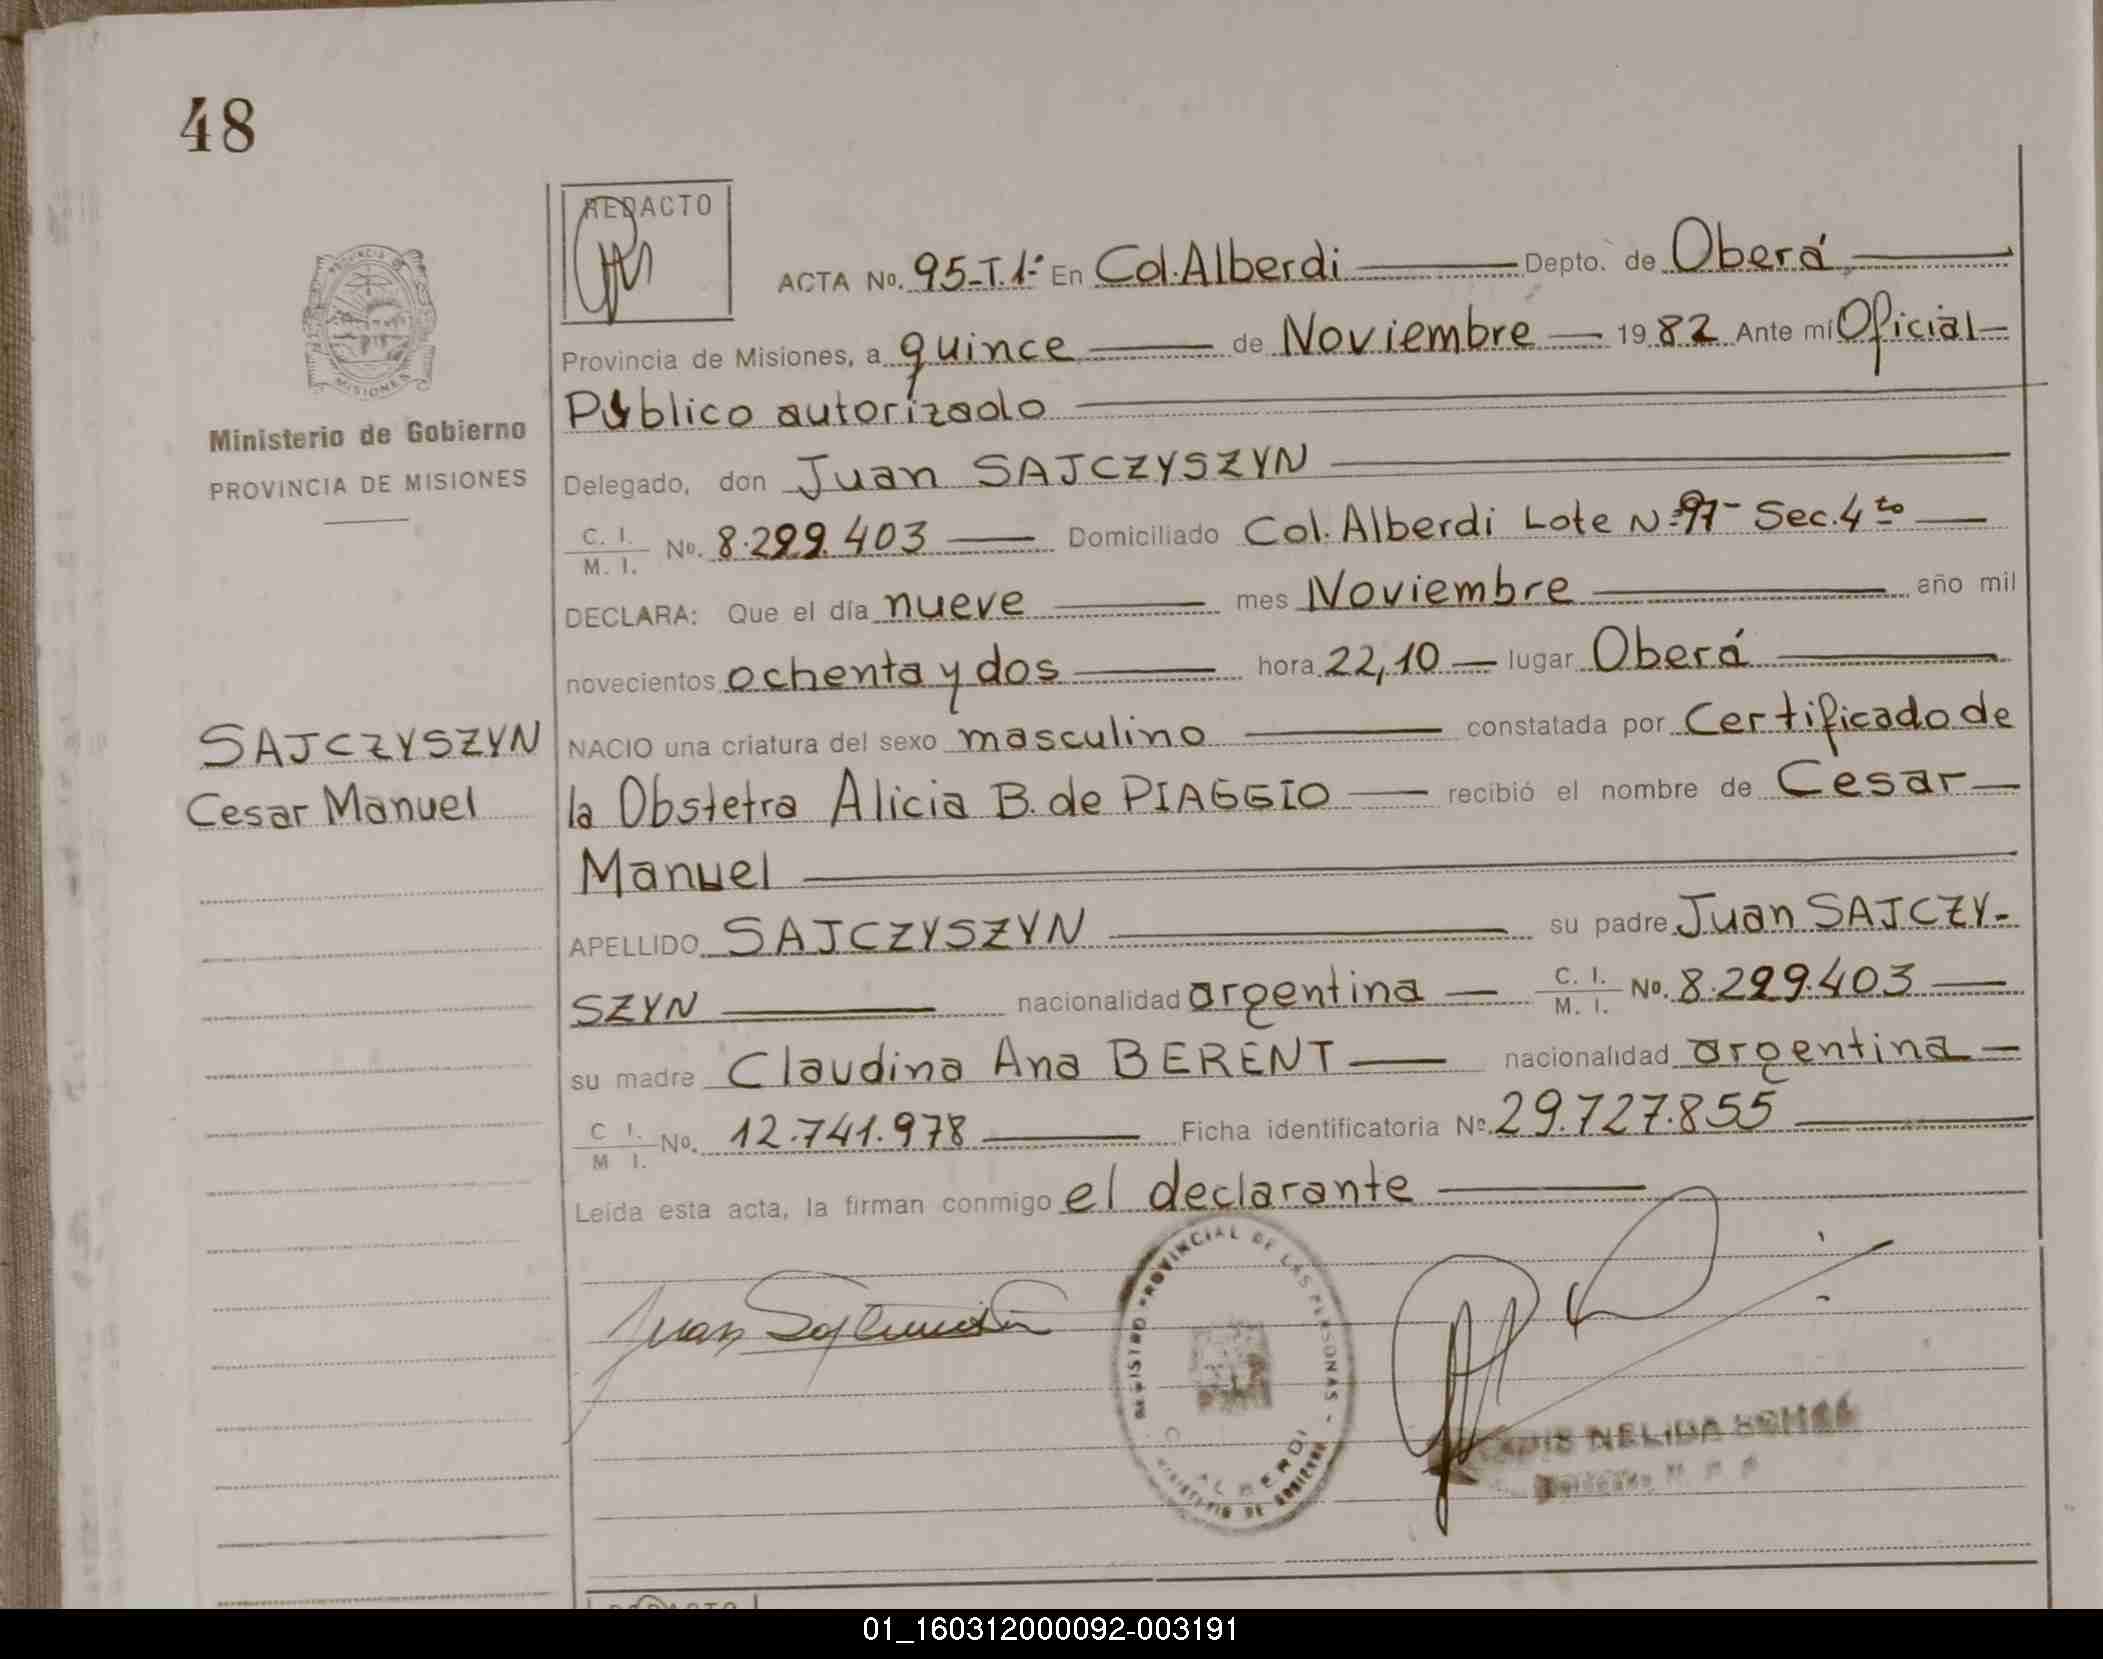 48
REDACTO
ACTA No. 95-T.1- En Col. Alberdi Depto. de Oberá
Provincia de Misiones, a quince de Noviembre 1982 Ante mí Oficial
Público autorizado
Ministerio de Gobierno
PROVINCIA DE MISIONES
Delegado, don Juan SAJCZYSZYN
C. I. M. I. No. 8.299.403 Domiciliado Col. Alberdi Lote Nº 97- Sec. 4to
DECLARA: Que el día nueve mes Noviembre año mil
novecientos ochenta y dos hora 22,10 lugar Oberá
SAJCZYSZYN
Cesar Manuel
NACIO una criatura del sexo masculino constatada por Certificado de
la Obstetra Alicia B. de PIAGGIO recibió el nombre de Cesar
Manuel
APELLIDO SAJCZYSZYN su padre Juan SAJCZY-
SZYN nacionalidad argentina C. I. M. I. No. 8.299.403
su madre Claudina Ana BERENT nacionalidad argentina
C I. M I. No. 12.741.978 Ficha identificatoria Nº 29.727.855
Leída esta acta, la firman conmigo el declarante
Juan
REGISTRO PROVINCIAL DE LAS PERSONAS -
ALBERDI
MINISTERIO DE GOBIERNO
NELIDA
01_160312000092-003191